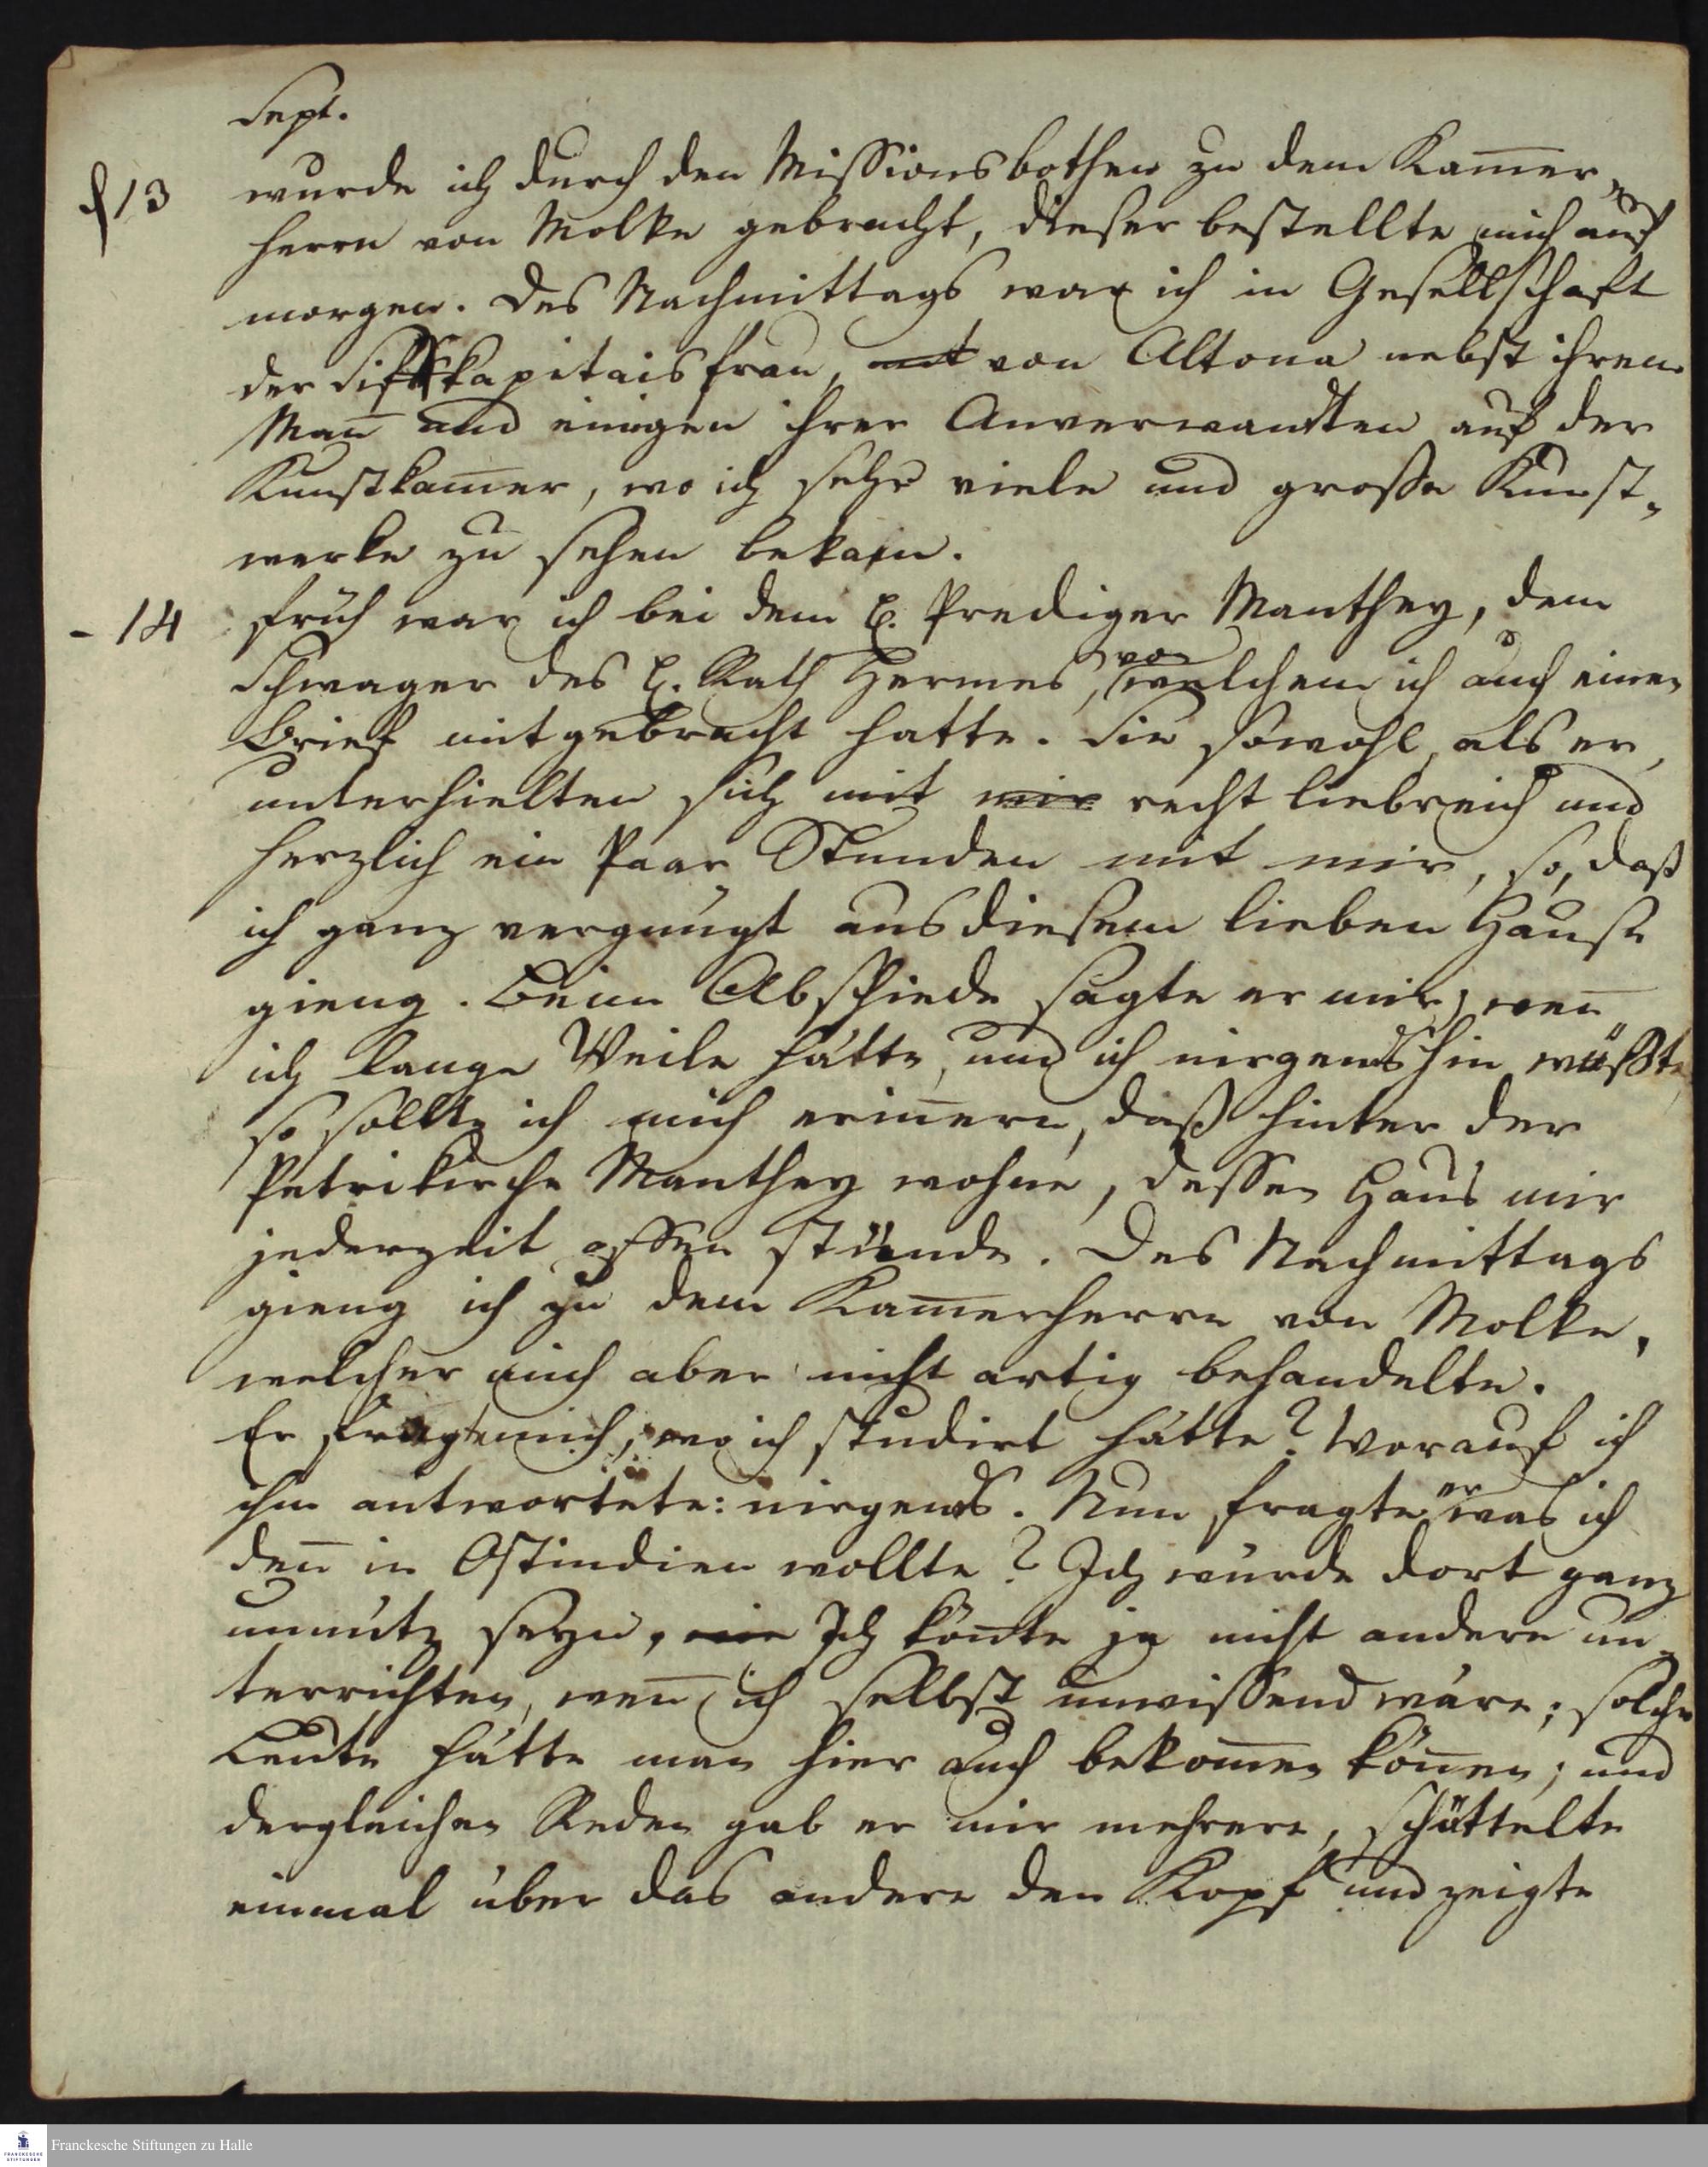 Sept.
d 13 wurde ich durch den Missionsbothen zu dem Kam̅er¬
herrn von Molke gebracht, dieser bestellte mich auf
morgen. Des Nachmittags war ich in Gesellschaft
der Sifskapitaisfrau, von Altona nebst ihren
Man̅ und einigen ihrer Anverwandten auf der
Kunstkam̅er, wo ich sehr viele und große Kunst¬
werke zu sehen bekam.
- 14 früh war ich bei dem H. Prediger Manthey, dem
Schwager des H. Rath Hermes, von welchem ich auch einen
Brief mitgebracht hatte. Sie sowohl, als er,
unterhielten sich mit mir recht liebreich und
herzlich ein Paar Stunden mit mir, so, daß
ich ganz vergnügt aus diesem lieben Hause
gieng. Beim Abschiede sagte er mir, wen̅
ich lange Weile hätte, und ich nirgends hin wüßte,
so sollte ich mich erin̅ern, daß hinter der
Petrikirche Manthey wohne, dessen Haus mir
jederzeit offen stünde. Des Nachmittags
gieng ich zu dem Kam̅erherrn von Molke,
welcher mich aber nicht artig behandelte.
Er fragte mich, wo ich studirt hätte? Worauf ich
ihm antwortete: nirgends. Nun fragte er was ich
den̅ in Ostindien wollte? Ich würde dort ganz
unnütz seyn, Ich kön̅te ja nicht andere un¬
terrichten, wen̅ ich selbst unwissend wäre; solche
Leute hätte man hier auch bekom̅en kön̅en; und
dergleichen Reden gab er mir mehrere, schüttelte
einmal über das andere den Kopf und zeigte
Franckesche Stiftungen zu Halle
FRANCKESCHE
STIFTUNGEN